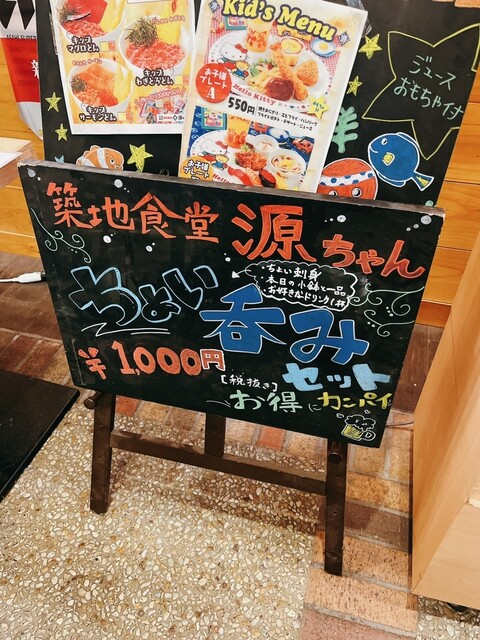 ASAHI SUPER
新
キッズ
マグロどん
キッズ
ねぎとろどん
キッズ
サーモンどん
Kid's Menu
お子様
プレート
A
550円
Hello Kitty
お子様
プレート
ジュース
おもちゃ付
築地食堂 源ちゃん
・ちょい刺身
・本日の小鉢と一品
・お好きなドリンク1杯
ちょい呑み
¥1,000円
[税抜き]
セット
お得にカンパイ